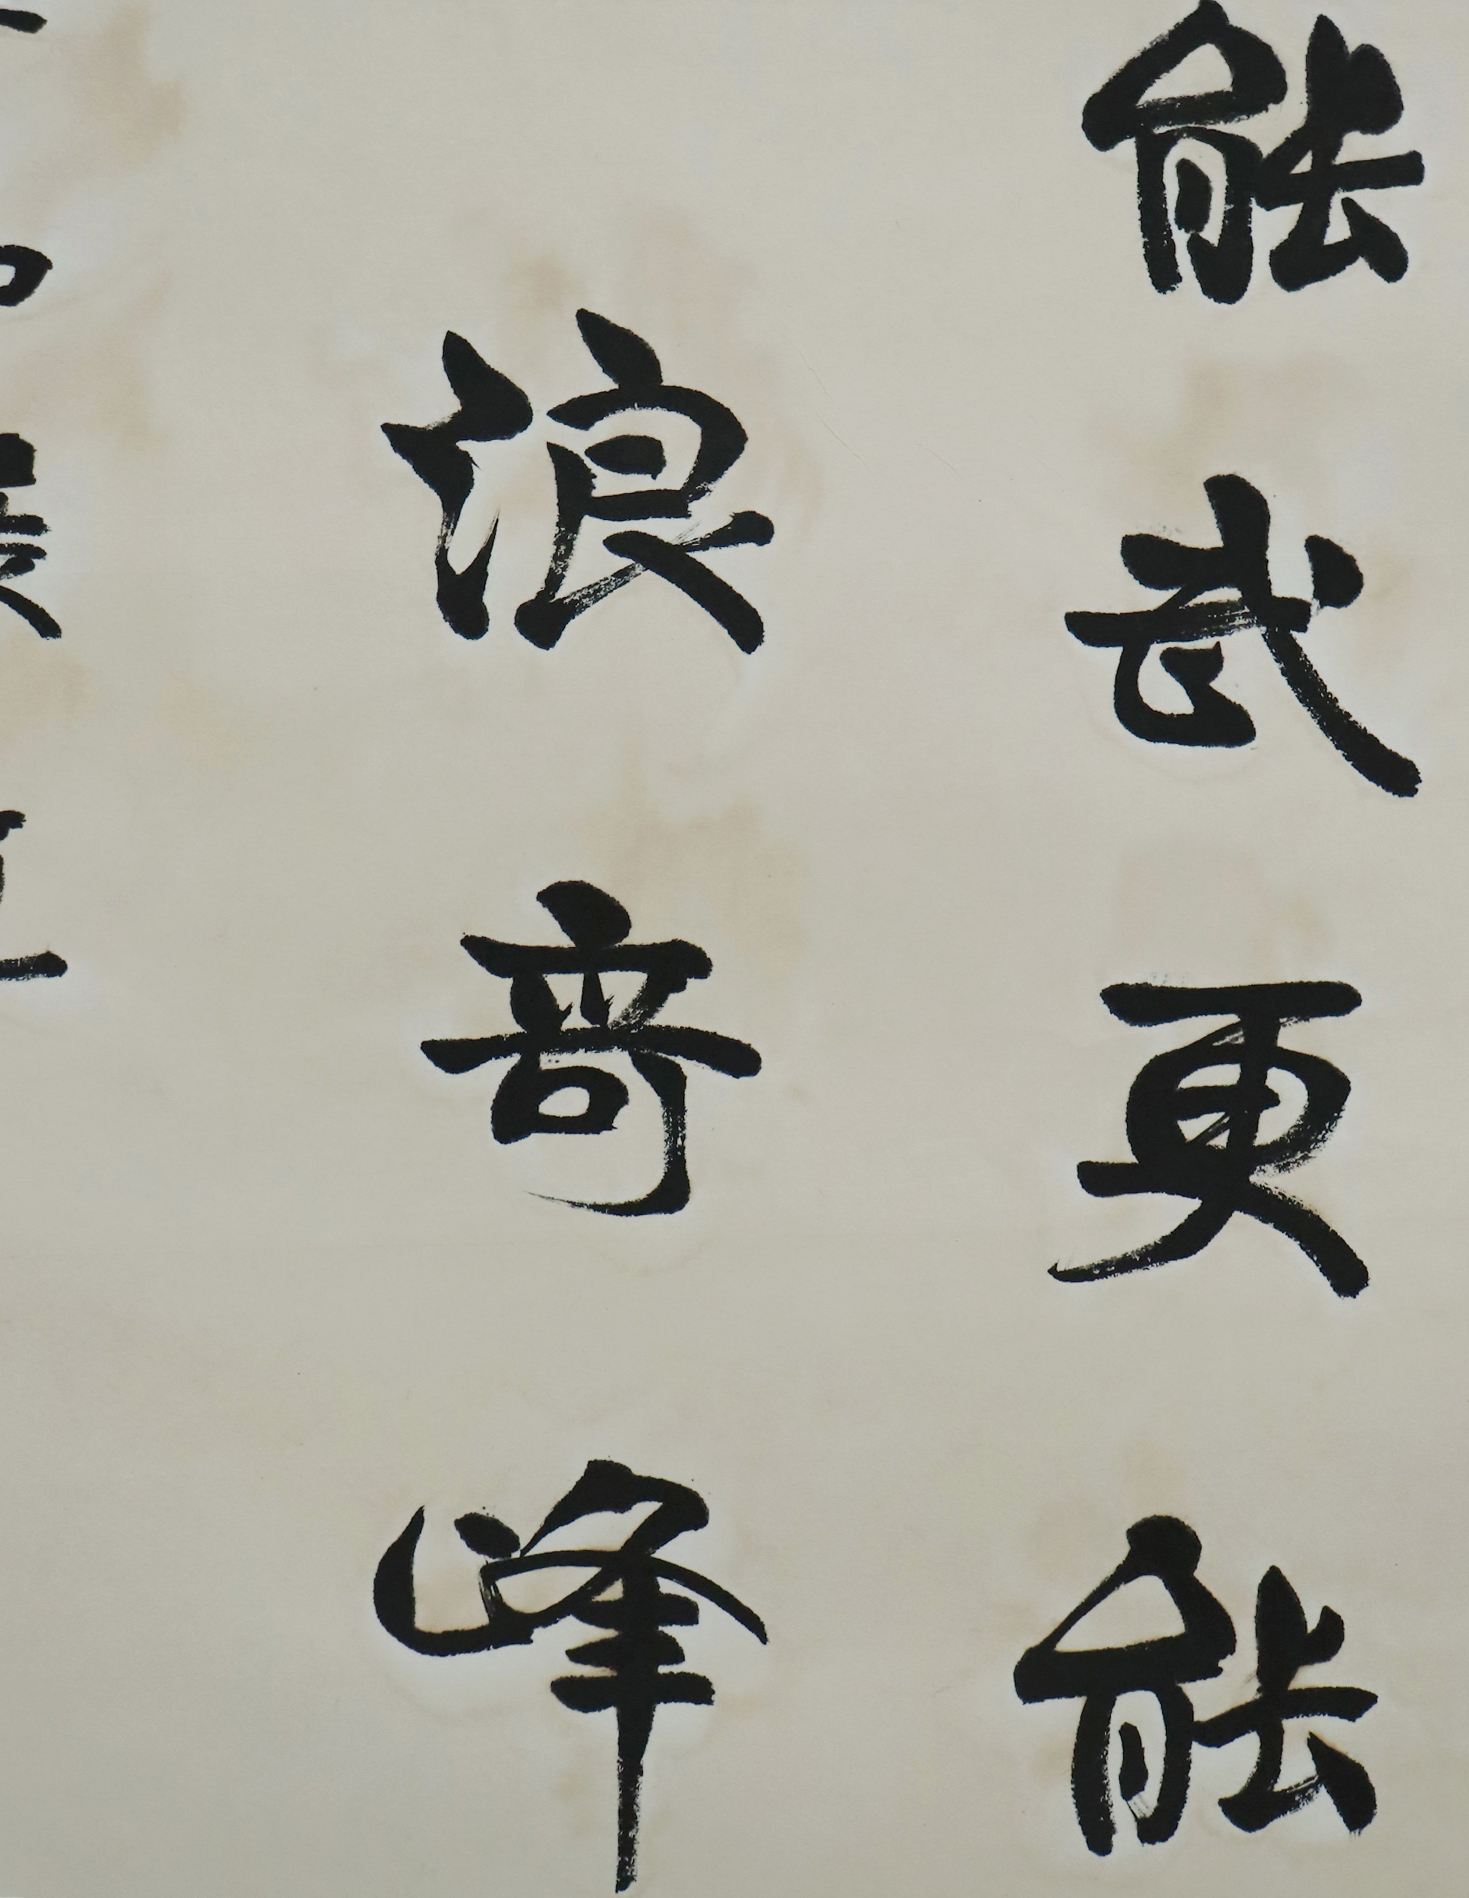 能武更能
浪竒峰